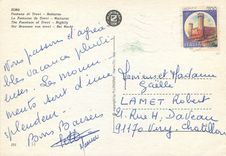 ROMA
Fontana di Trevi - Notturno
La Fontaine de Trevi - Nocturne
The Fountain of Trevi - Nightly
Der Brunnen von Trevi - Bei Nacht
Nous passons d'agréa
bles vacances
Les monu
ments sont d'une
splendeur.
Bons Baisers
Monsieur et Madame
Gaëlle
LAMET Robert
St Rue H. DaVeau
91170 Viry-Chatillon